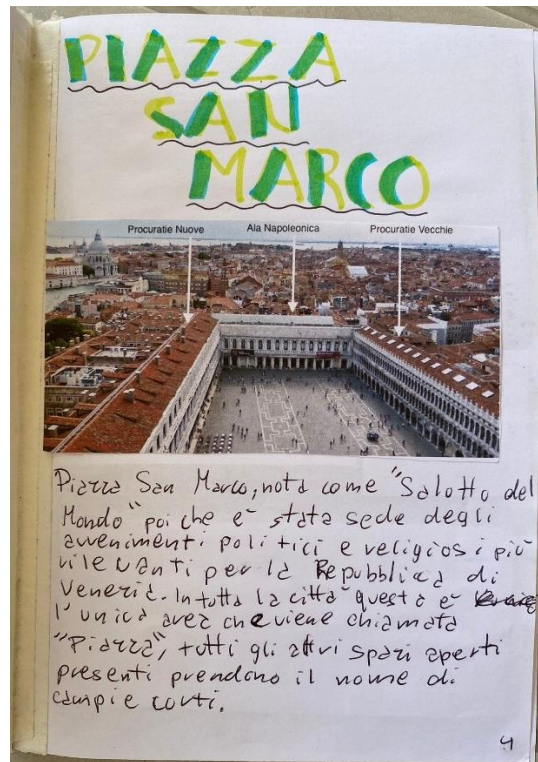 PIAZZA
SAN
MARCO
Procuratie Nuove Ala Napoleonica Procuratie Vecchie
Piazza San Marco, nota come "Salotto del
Mondo" poi che è stata sede degli
avvenimenti politici e religiosi più
rilevanti per la Repubblica di
Venezia. In tutta la città questa è
l'unica area che viene chiamata
"Piazza", tutti gli altri spazi aperti
presenti prendono il nome di
campi e corti.
4